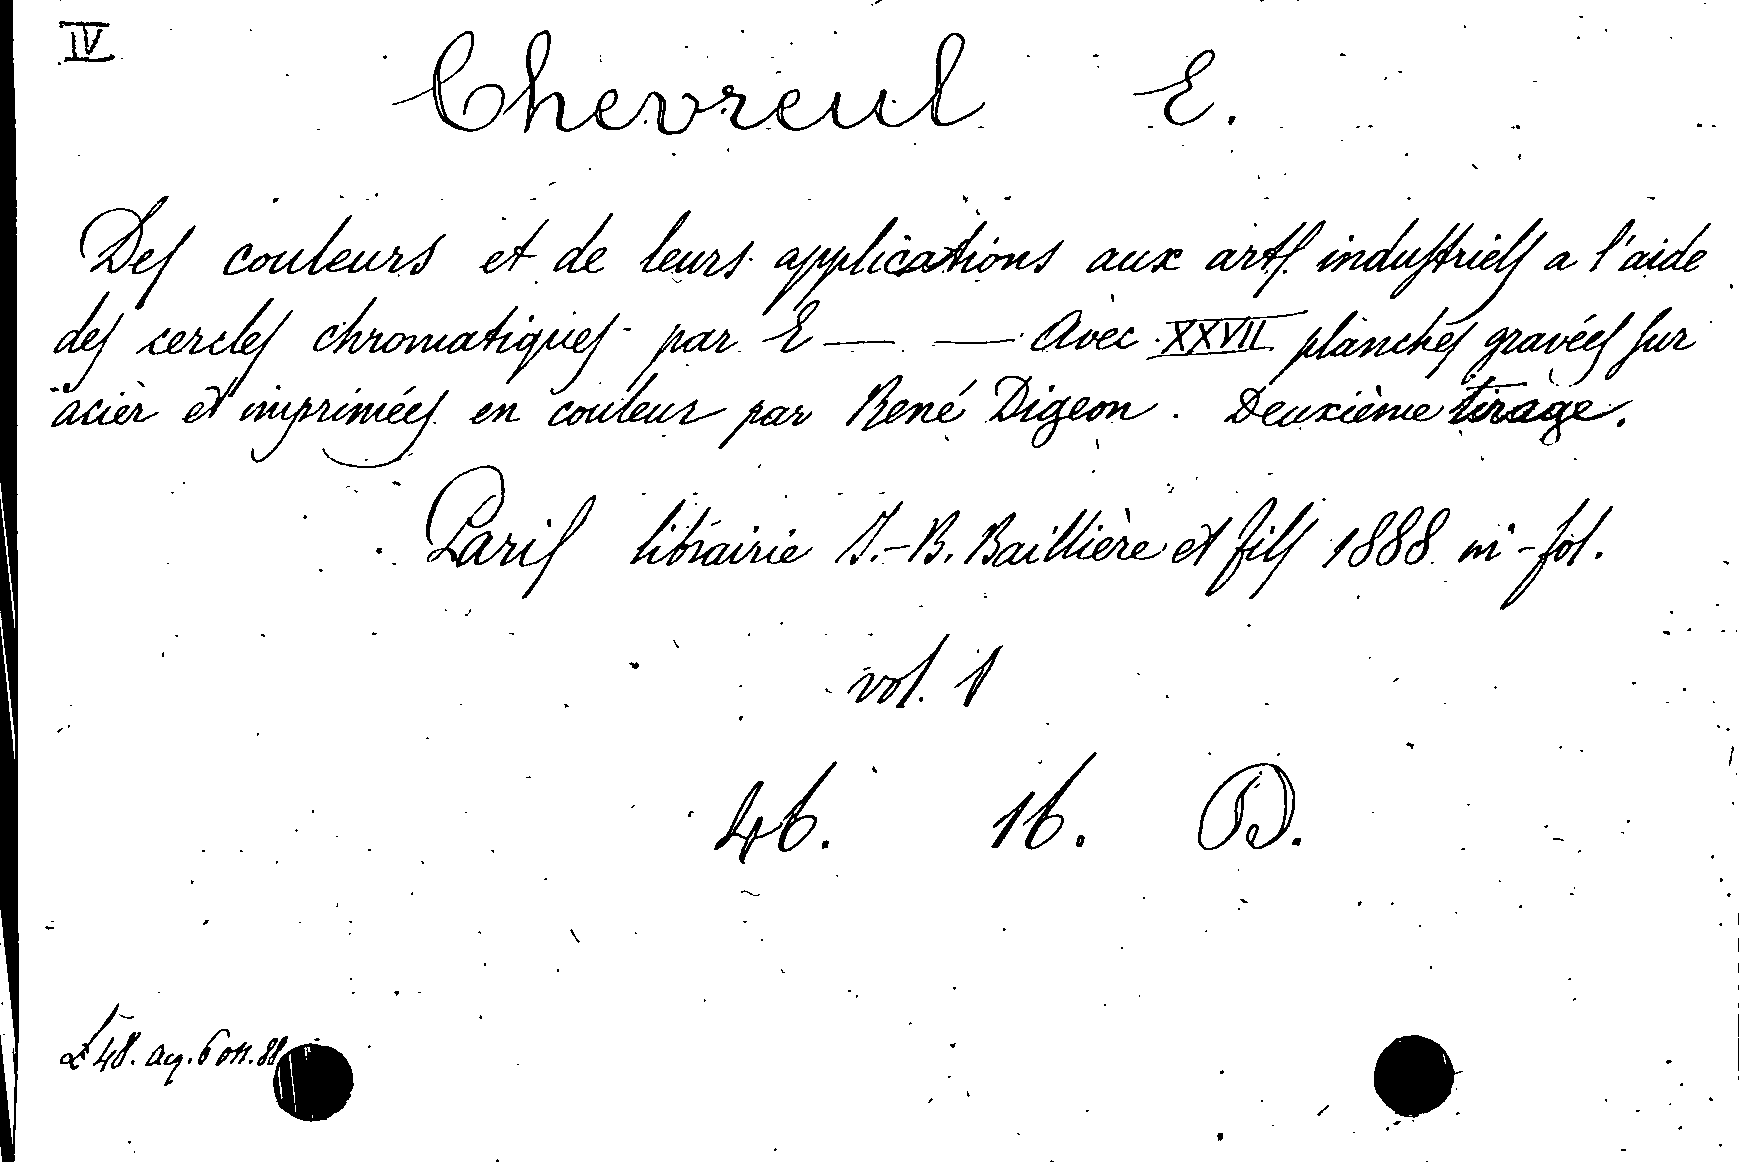 IV
Chevreul E.
Des couleurs et de leurs applications aux arts industriels a l'aide
des cercles chromatiques par E — — Avec XXVII planches gravées sur
acier et imprimées en couleur par René Digeon. Deuxième tirage.
Paris librairie J.-B. Baillière et fils 1888 in-fol.
vol. 1
46. 16. D.
£ 48. acq. 6 ott. 88